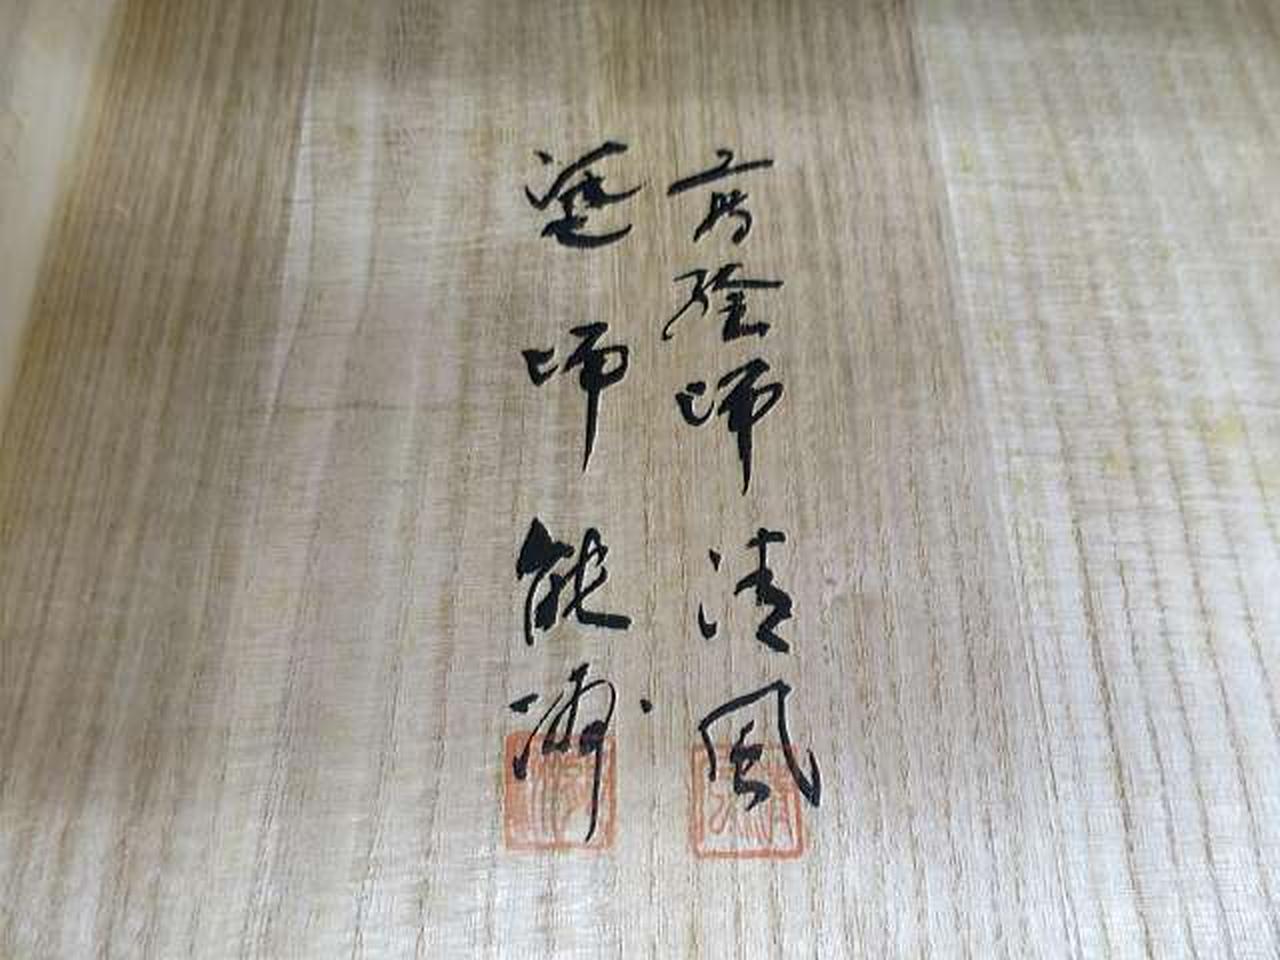 蒔絵師清風
塗師能瀞